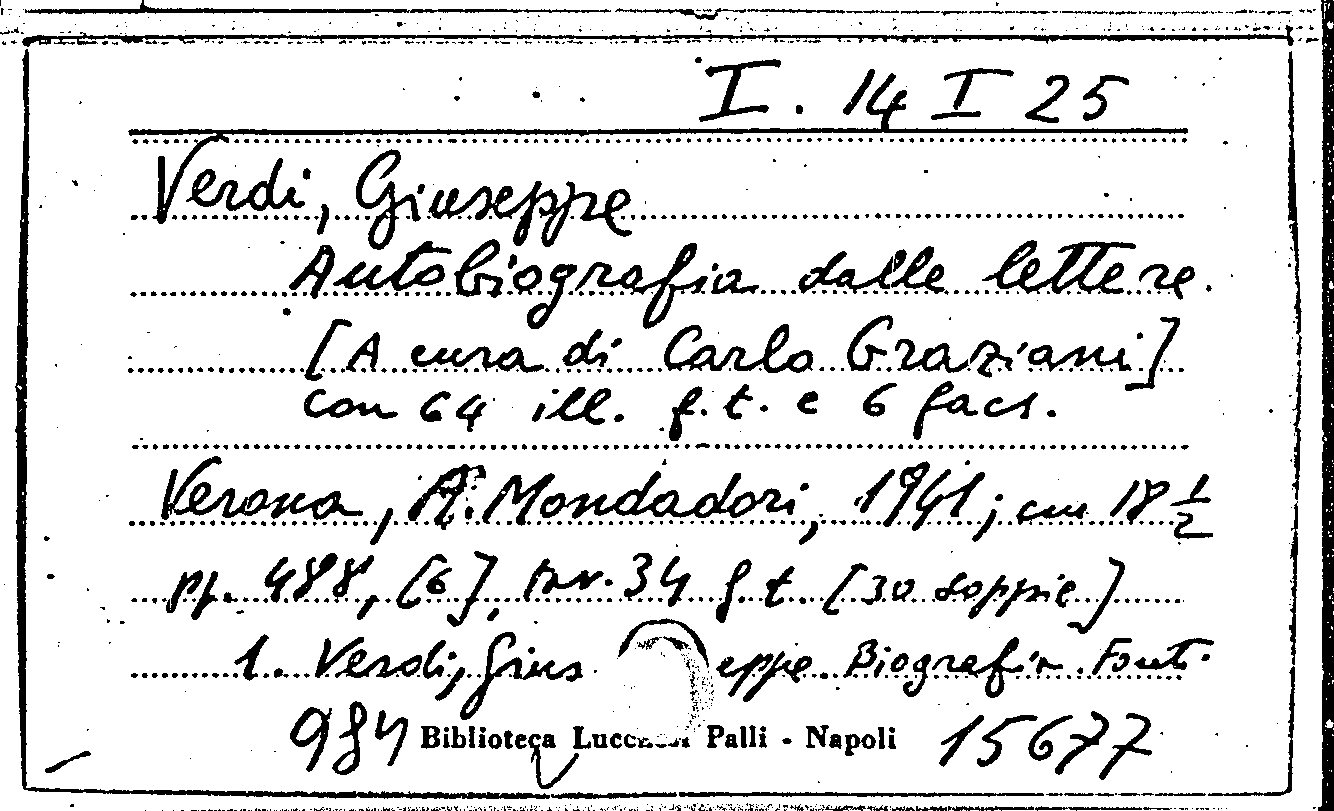 I. 14 I 25
Verdi, Giuseppe
Autobiografia dalle lettere.
[A cura di Carlo Graziani]
con 64 ill. f.t. e 6 facs.
Verona, A. Mondadori, 1941; cm 18 ½
pp. 488, [6], tav. 34 f.t. [30 doppie]
1. Verdi, Giuseppe. Biografia. Fonti.
984 Biblioteca Palli - Napoli 15677